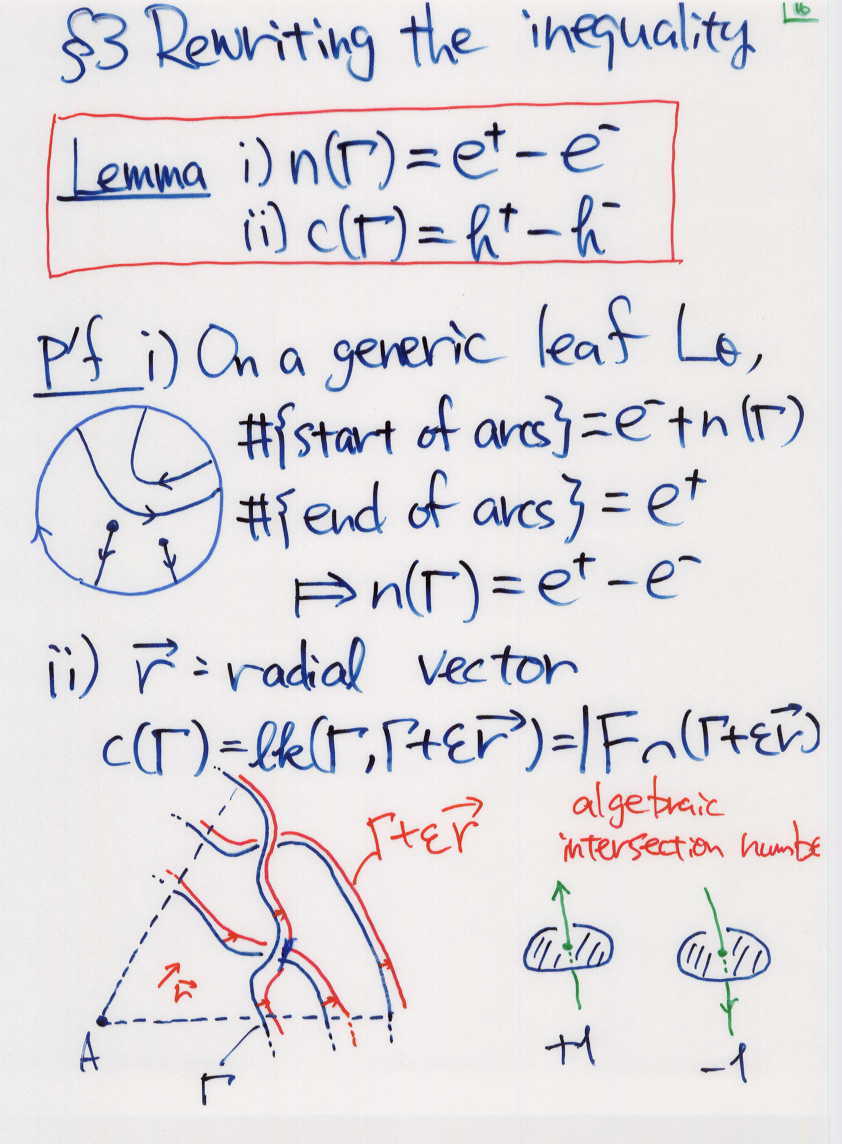 16
§3 Rewriting the inequality
Lemma i) n(Γ) = e⁺ - e⁻
ii) c(Γ) = h⁺ - h⁻
p'f i) On a generic leaf Lθ,
#{start of arcs} = e⁻ + n(Γ)
#{end of arcs} = e⁺
⟹ n(Γ) = e⁺ - e⁻
ii) r⃗ : radial vector
c(Γ) = lk(Γ, Γ+εr⃗) = |F∩(Γ+εr⃗)
algebraic
intersection numbe
Γ+εr⃗
r⃗
A
Γ
+1
-1